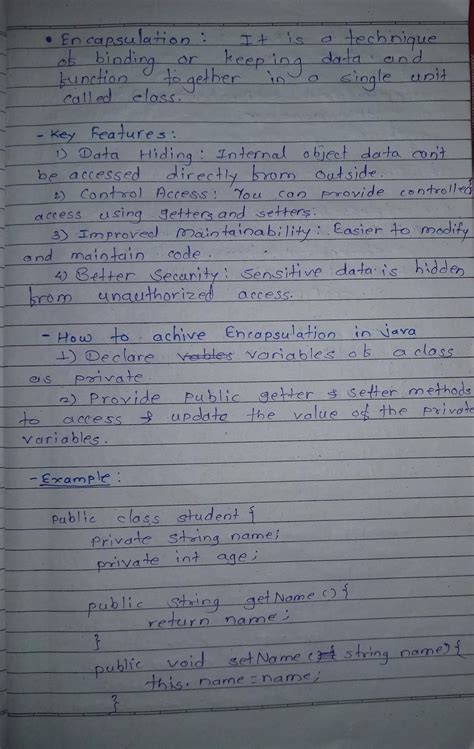 • Encapsulation : It is a technique
of binding or keeping data and
function together in a single unit
called class.
- Key Features :
1) Data Hiding : Internal object data can't
be accessed directly from outside.
2) Control Access : You can provide controlled
access using getters and setters.
3) Improved maintainability : Easier to modify
and maintain code.
4) Better Security : Sensitive data is hidden
from unauthorized access.
- How to achive Encapsulation in java
1) Declare variables of a class
as private.
2) Provide public getter & setter methods
to access & update the value of the private
variables.
- Example :
public class student {
private string name;
private int age;
public string getName () {
return name;
}
public void setName ( string name) {
this.name = name;
}